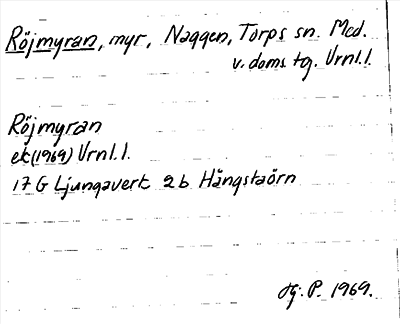 Röjmyran, myr, Naggen, Torps sn. Med.
v. doms tg. Vrnl.l.
Röjmyran
ek (1969) Vrnl.l.
17 G Ljungavert 2 b Hångstaörn
tg: P. 1969.